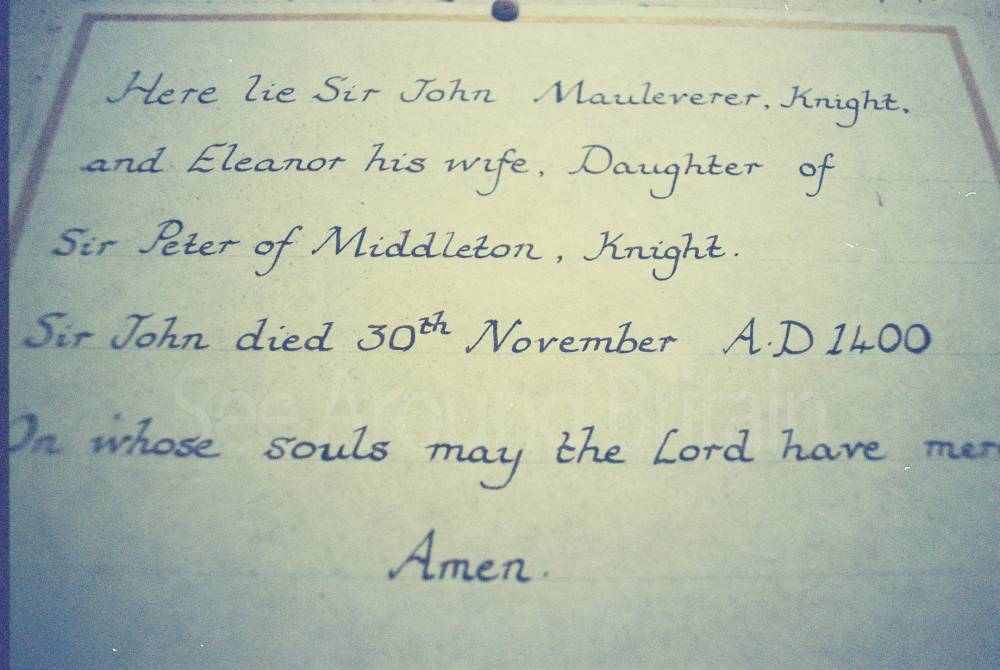 Here lie Sir John Mauleverer, Knight,
and Eleanor his wife, Daughter of
Sir Peter of Middleton, Knight.
Sir John died 30th November A.D 1400
On whose souls may the Lord have mer
Amen.
See Around Britain